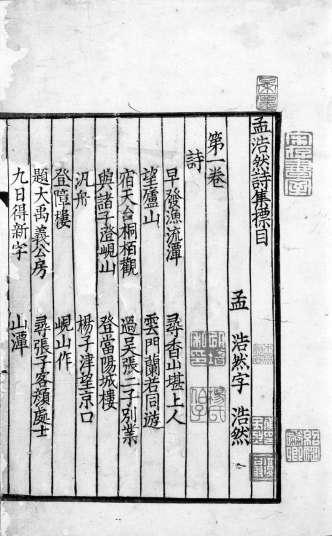 孟浩然詩集標目
孟 浩然字 浩然
第一卷
詩
早發漁流潭 尋香山堪上人
望廬山 雲門蘭若同遊
宿天台桐栢觀 過吳張二子別業
與諸子澄峴山 登當陽城樓
汎舟 楊子津望京口
登障樓 峴山作
題大禹義公房 尋張子容顏處士
九日得新字 山潭